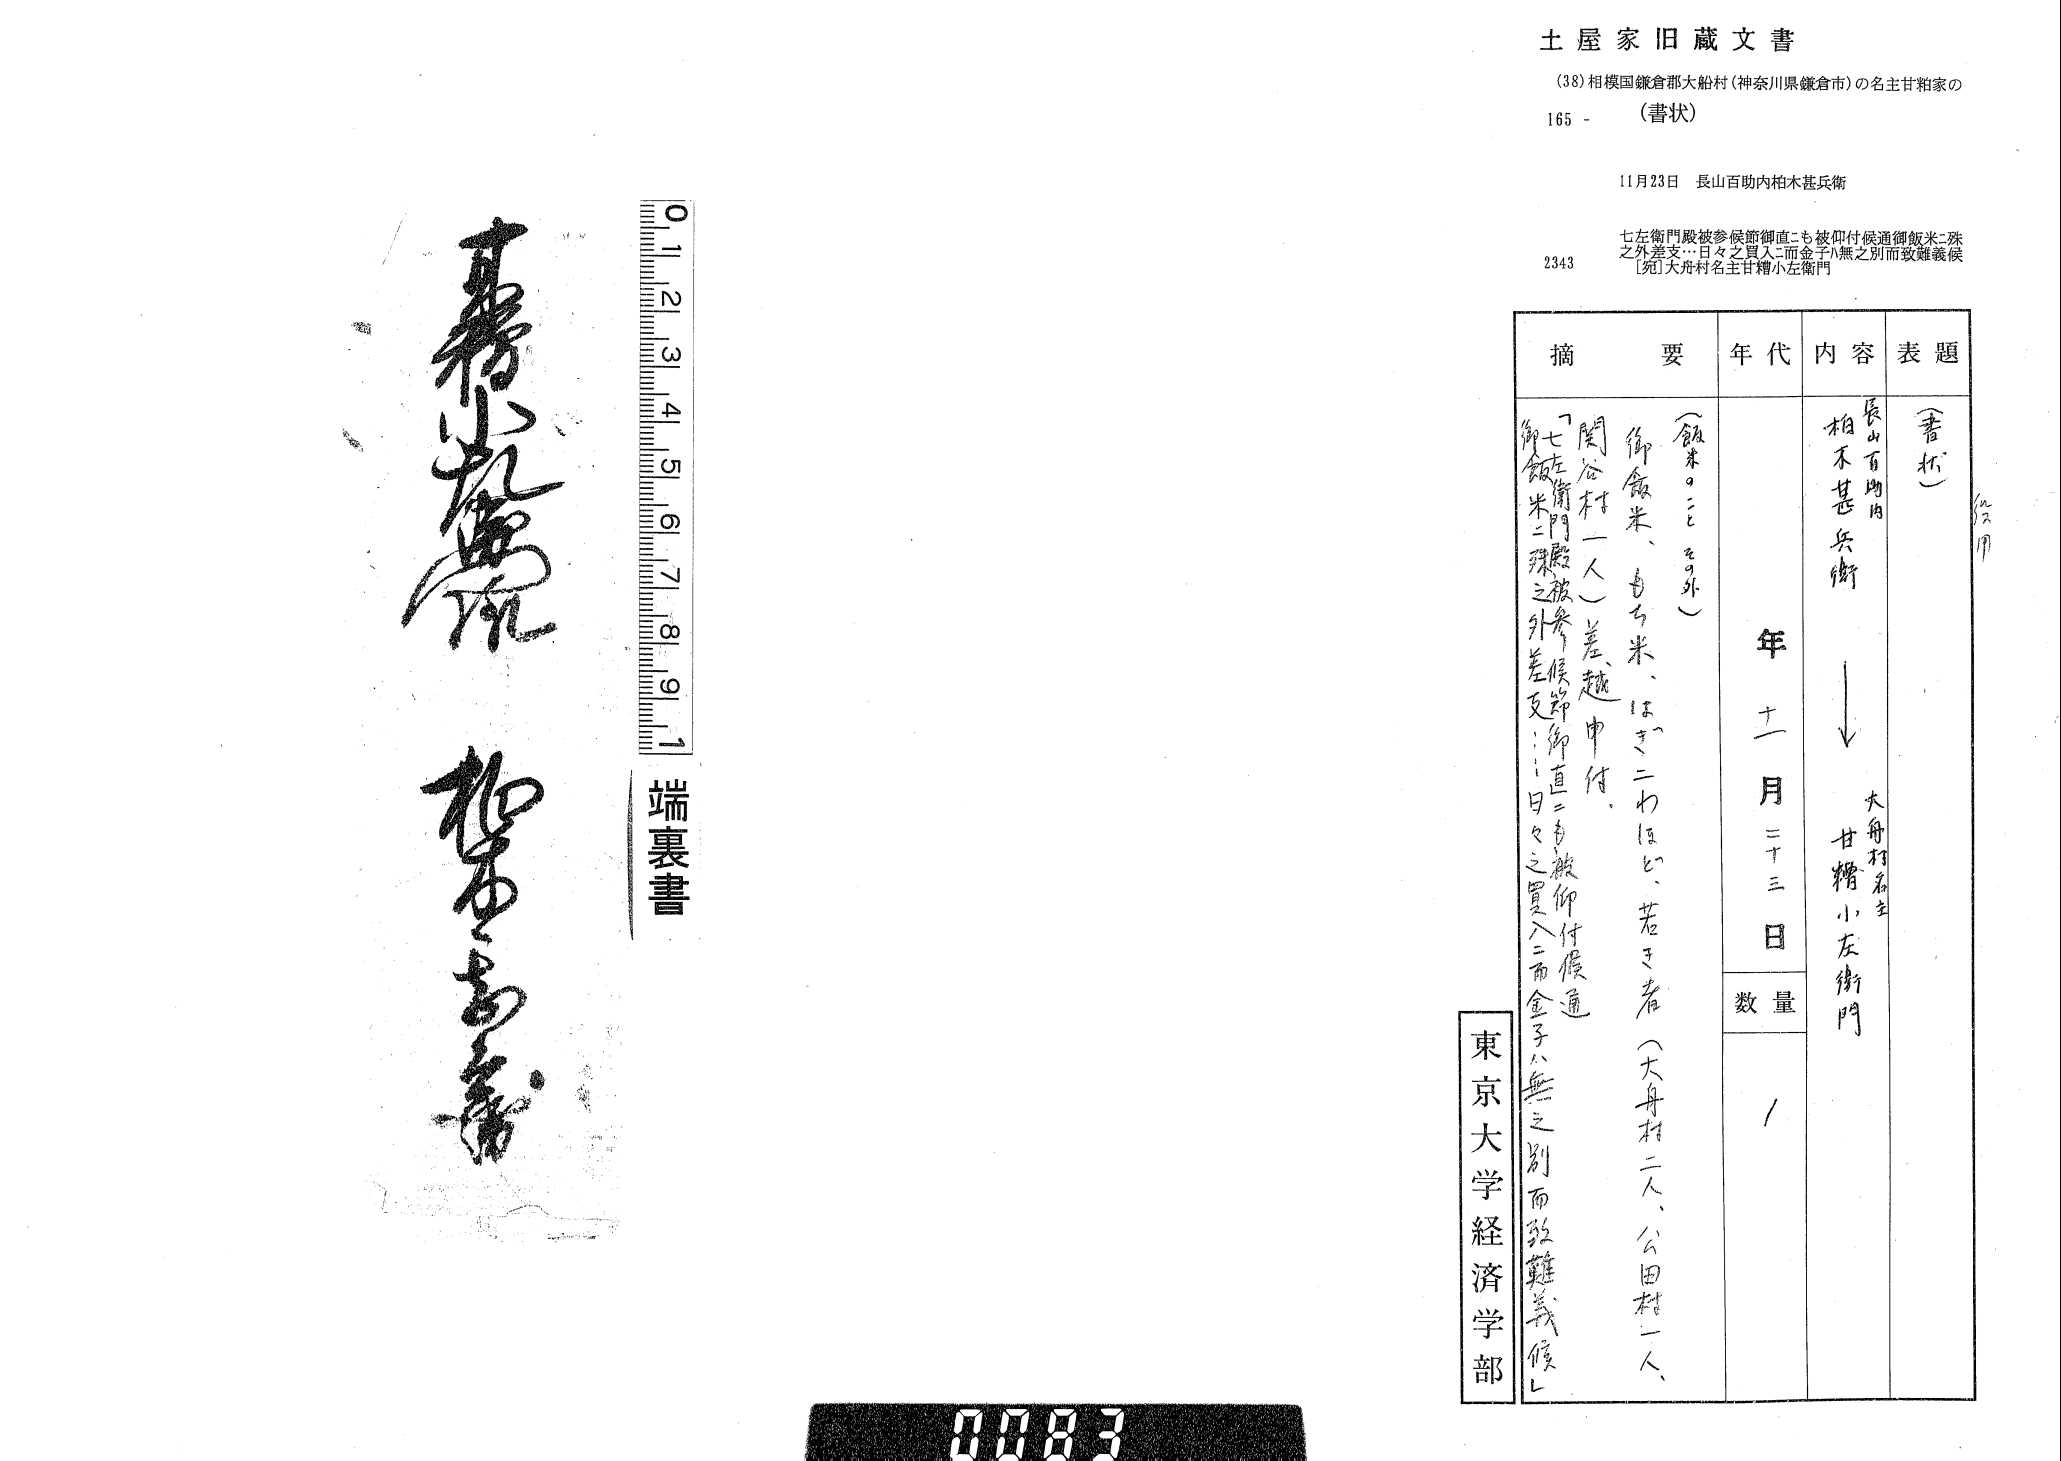 土屋家旧蔵文書
(38)相模国鎌倉郡大船村(神奈川県鎌倉市)の名主甘粕家の
165 -
(書状)
11月23日 長山百助内柏木甚兵衛
七左衛門殿被参候節御直ニも被仰付候通御飯米ニ殊
之外差支…日々之買入ニ而金子ハ無之別而致難義候
2343
[宛]大舟村名主甘糟小左衛門
表題
(書状)
内容
長山百助内
柏木甚兵衛
→
大舟村名主
甘糟小左衛門
年代
年十一月二十三日
数量
1
摘要
(飯米のこと その外)
御飯米、もち米、はぎ二わほど、若き者(大舟村二人、公田村一人、
関谷村一人)差越申付.
「七左衛門殿被参候節御直ニも被仰付候通
御飯米ニ殊之外差支……日々之買入ニ而金子ハ無之別而致難義候」
東京大学経済学部
0 1 2 3 4 5 6 7 8 9 1
端裏書
甘糟小左衛門殿 柏木甚兵衛
0083